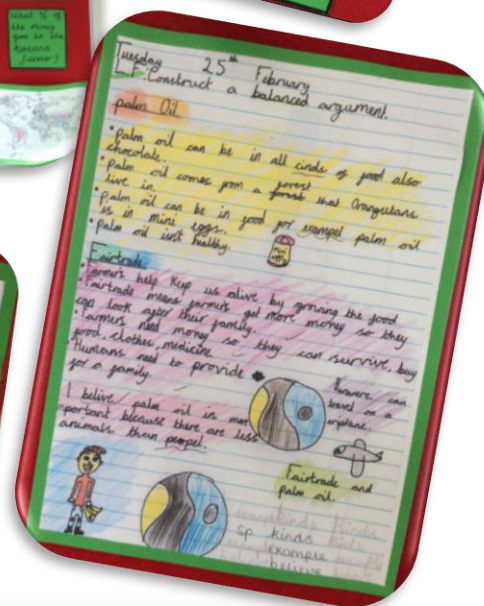 What % of
the money
goes to the
banana
farmer?
Tuesday 25th February
LF: Construct a balanced argument.
palm Oil.
• Palm oil can be in all cinds of food also
chocolate.
• Palm oil comes from a forest that Orangutans
live in.
• Palm oil can be in food for exampel palm oil
is in mini eggs.
• Palm oil isn't healthy.
Mini
eggs
Fairtrade
• Farmers help kep us alive by growing the food
• Fairtrade means farmers get more money so they
can look after their family.
• Farmers need money so they can survive, buy
food, clothes, medicine.
• Humans need to provide
for a family.
However can
travel on a
airplane.
I belive palm oil is more
portant because there are less
animals then peopel.
Fairtrade and
palm oil.
kinds kinds
sp kinds
example
believe